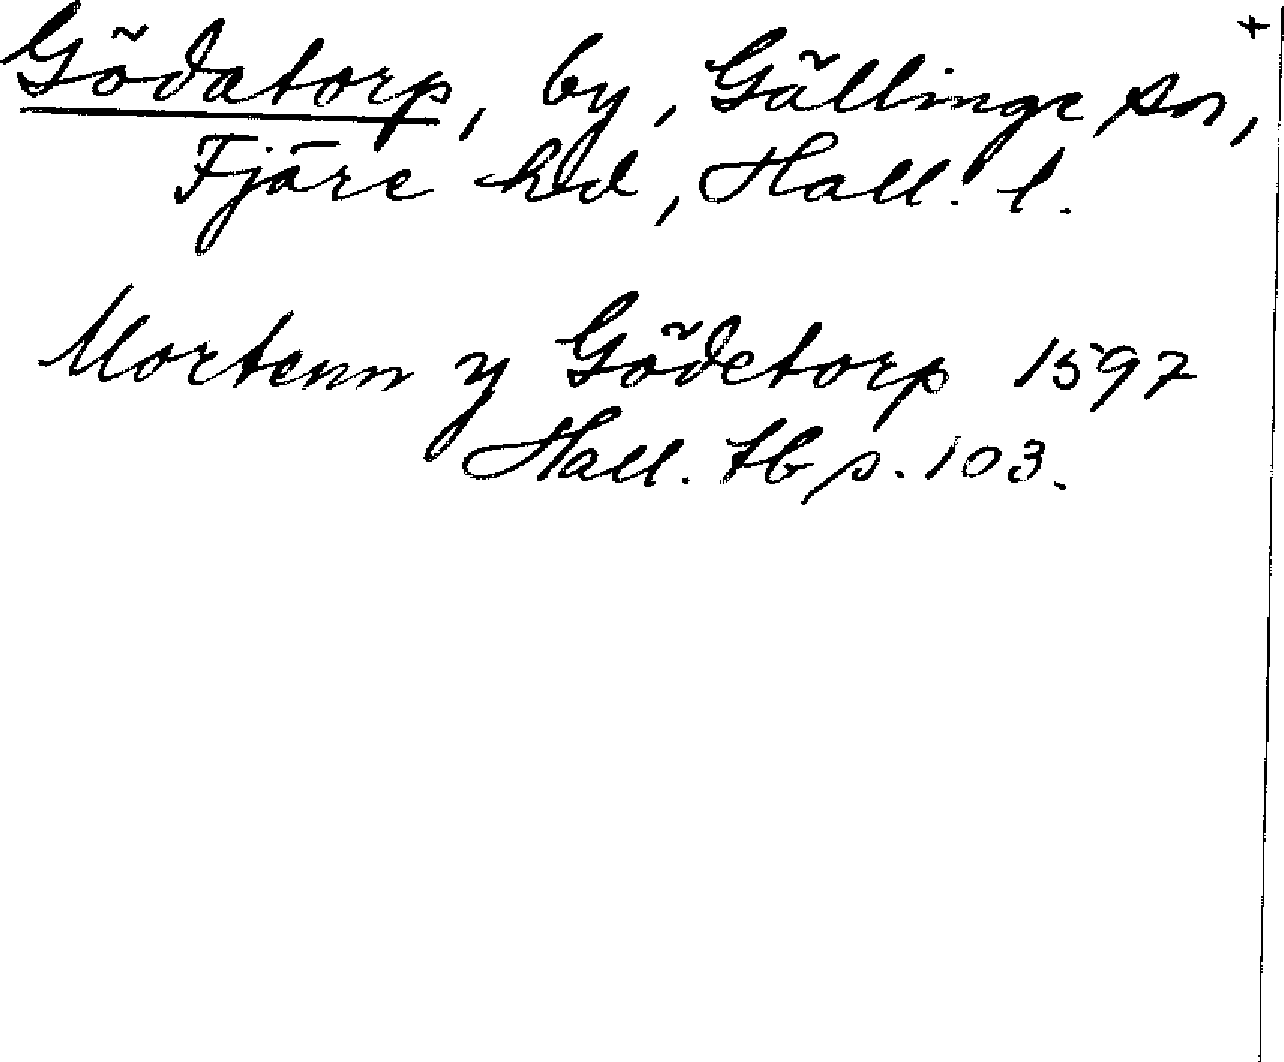 Gödatorp, by, Gällinge sn,
Fjäre hd, Hall. l.
Mortenn y Gödetorp 1597
Hall. tb s. 103.